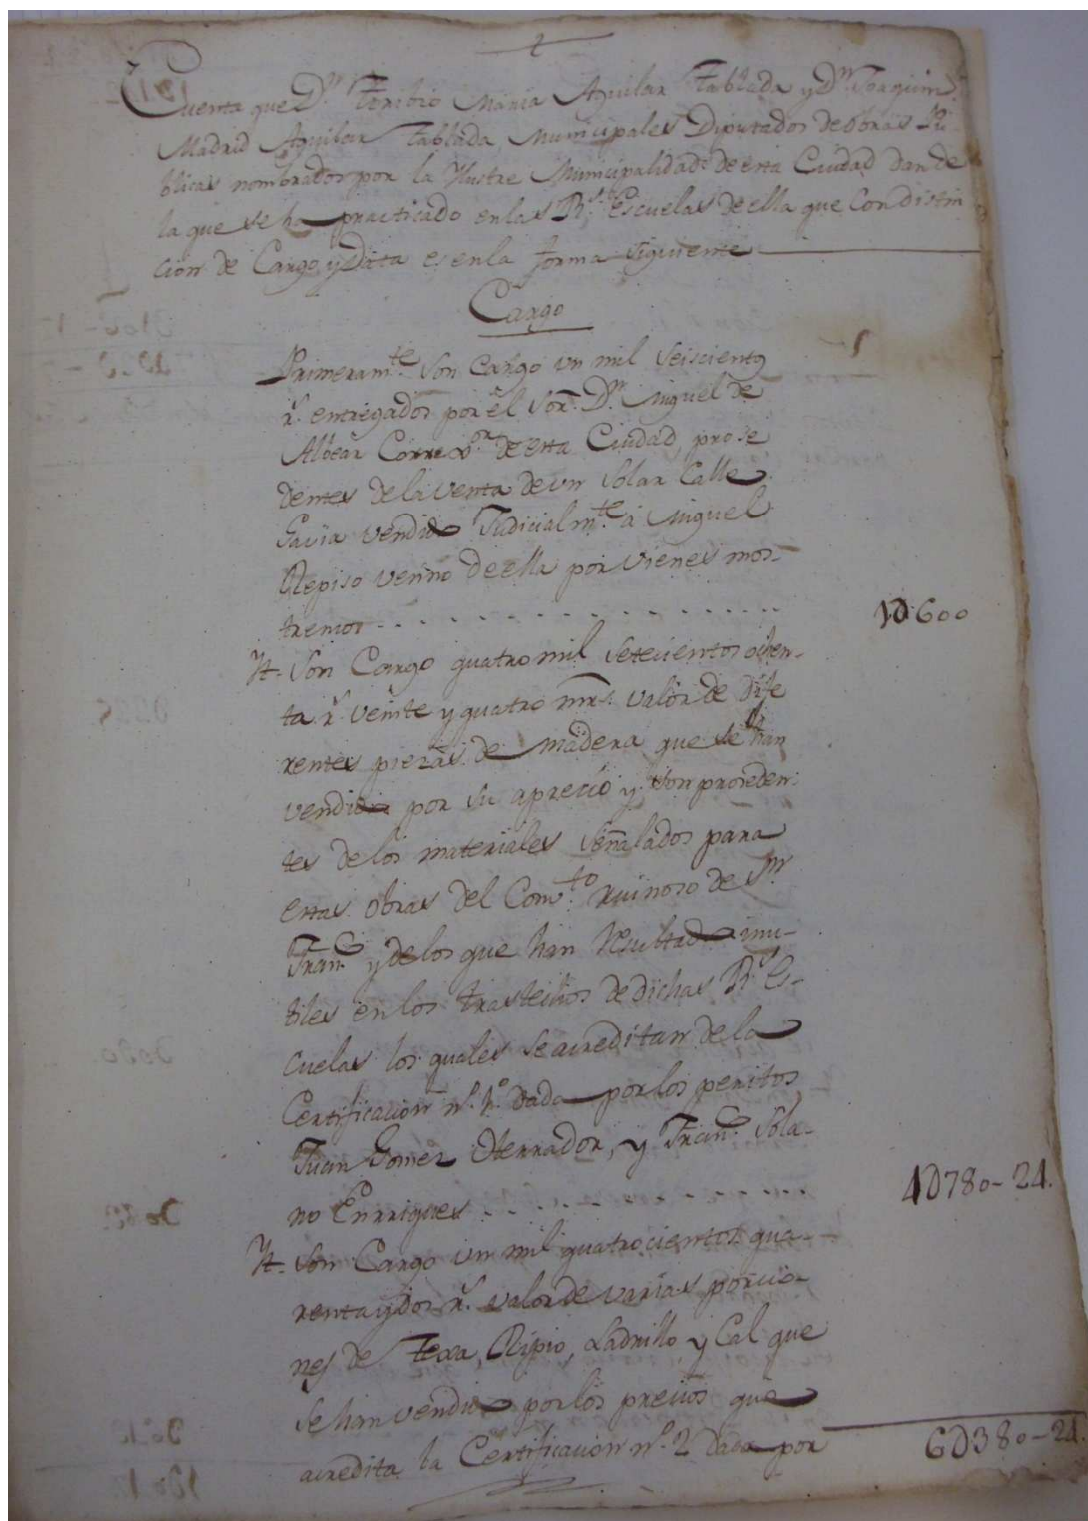 Cuenta que Dn. Toribio Maria Aguilar Tablada y Dn. Joaquin
Madrid Aguilar Tablada, Municipales Diputados de obras Pu-
blicas nombrados por la Ylustre Municipalidad de esta Ciudad dan de
la que se ha practicado en las Rs. Escuelas de ella que con distin
cion de Cargo, y Data es en la forma siguiente
Cargo
Primeramte. son Cargo un mil seiscientos
rs. entregados por el Sor. Dn. Miguel de
Albear Corregor. de esta Ciudad, prose
dentes de la venta de un solar Calle
Gavia vendido Judicialmte. á Miguel
Repiso vecino de ella por vienes mos-
trencos
1D600
Yt. son Cargo quatro mil setecientos ochen-
ta rs. veinte y quatro mrs. valor de dife
rentes piezas de madera que se han
vendido por su aprecio y son proceden-
tes de los materiales señalados para
estas obras del Convto. ruinoso de Sn.
Franco. y de los que han resultado inu-
tiles en los trasteiios de dichas Rs. Es-
cuelas los quales se acreditan de la
Certificacion nº. 1º. dada por los peritos
Juan Gomez Herrador, y Franco. Sola-
no Enrriques
4D780-24.
Yt. son Cargo un mil quatrocientos qua-
renta y dos rs. valor de varias porcio-
nes de Texa, Ripio, Ladrillo, y Cal que
se han vendido por los precios que
acredita la Certificacion nº. 2 dada por
6D380-24.